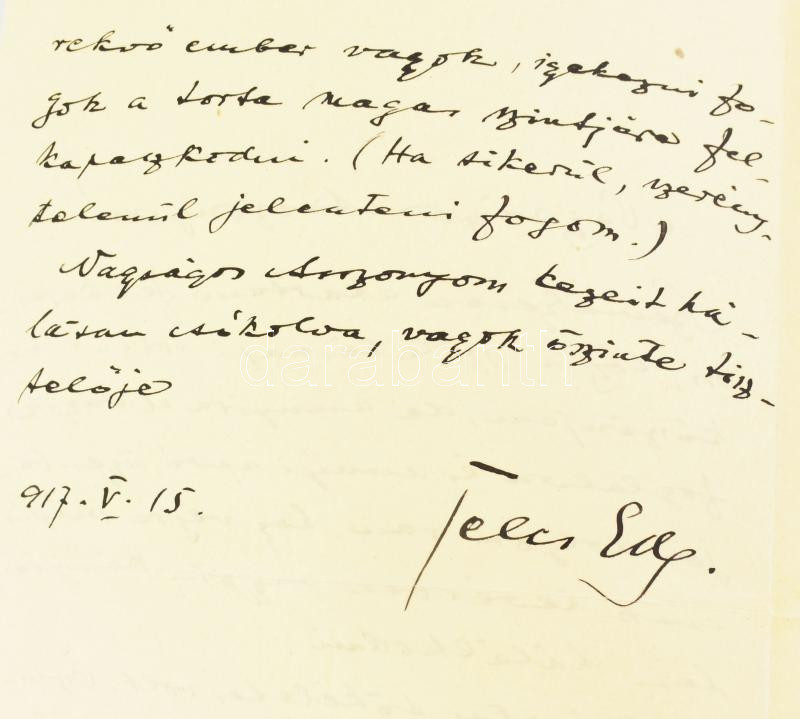 rekvő ember vagyok, igekezni fo-
gok a torta magas szintjére fel-
kapaszkodni. (Ha sikerül, szerény-
telenül jelenteni fogom.)
Nagyságos Asszonyom kezeit há-
lásan csókolva, vagyok őszinte tisz-
telője
917. V. 15.
Telcs Ede.
darabanth